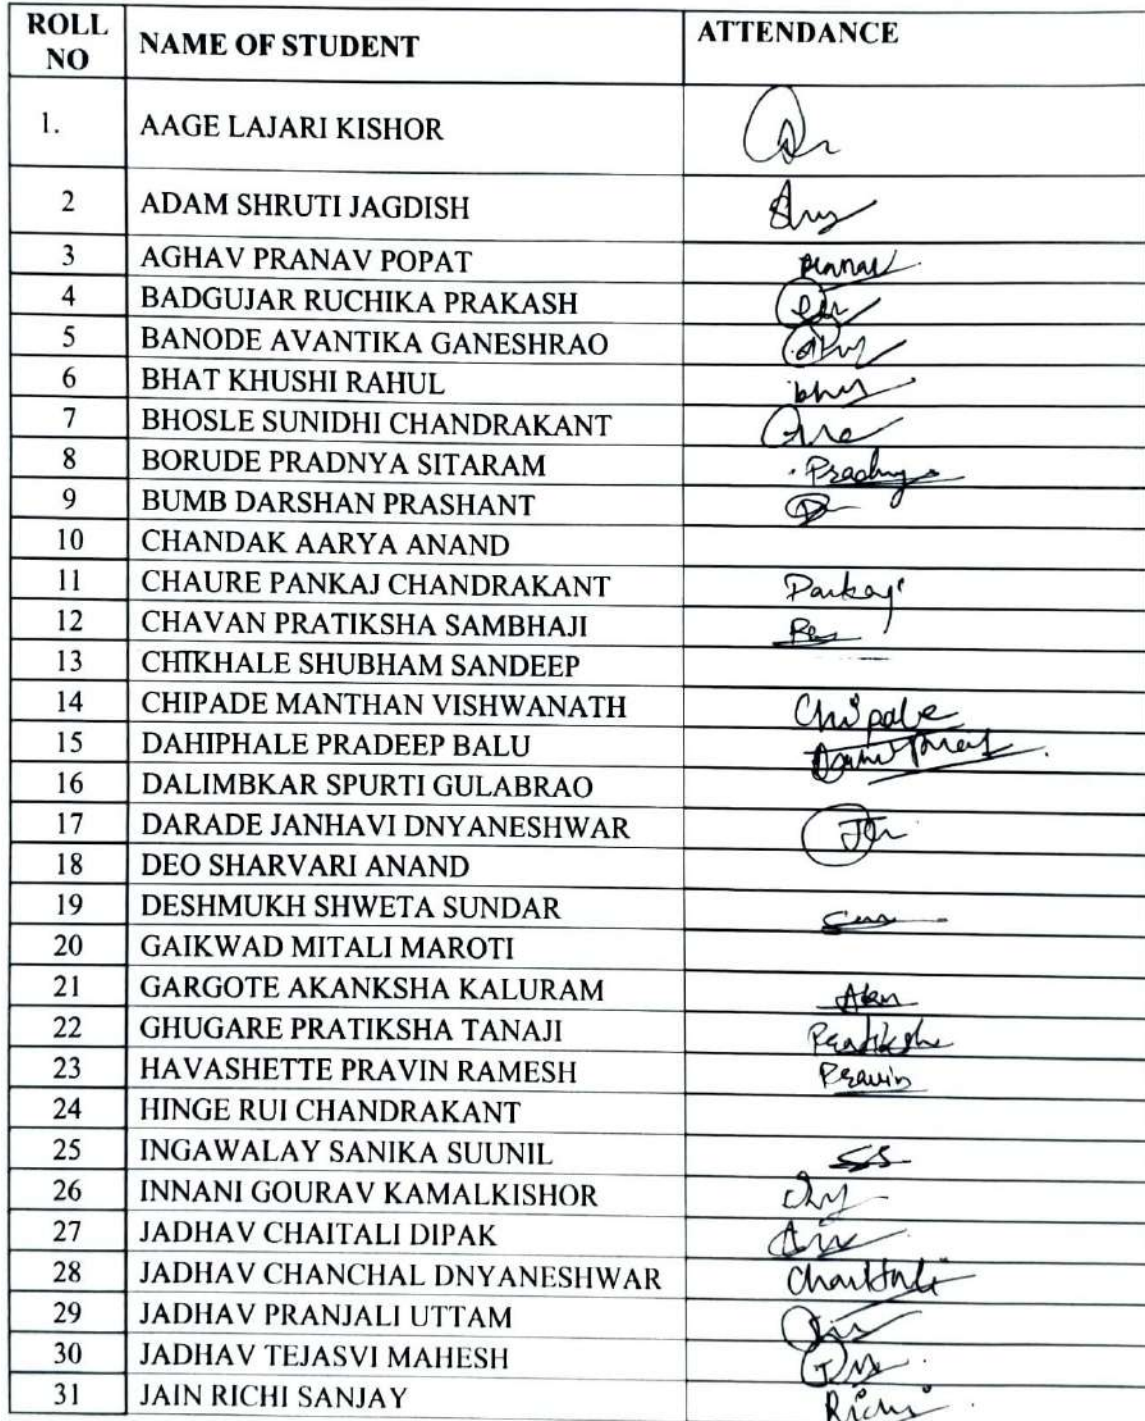 ROLL NO NAME OF STUDENT ATTENDANCE
1. AAGE LAJARI KISHOR
2 ADAM SHRUTI JAGDISH
3 AGHAV PRANAV POPAT
4 BADGUJAR RUCHIKA PRAKASH
5 BANODE AVANTIKA GANESHRAO
6 BHAT KHUSHI RAHUL
7 BHOSLE SUNIDHI CHANDRAKANT
8 BORUDE PRADNYA SITARAM
9 BUMB DARSHAN PRASHANT
10 CHANDAK AARYA ANAND
11 CHAURE PANKAJ CHANDRAKANT Pankaj
12 CHAVAN PRATIKSHA SAMBHAJI
13 CHIKHALE SHUBHAM SANDEEP
14 CHIPADE MANTHAN VISHWANATH Chipade
15 DAHIPHALE PRADEEP BALU
16 DALIMBKAR SPURTI GULABRAO
17 DARADE JANHAVI DNYANESHWAR
18 DEO SHARVARI ANAND
19 DESHMUKH SHWETA SUNDAR
20 GAIKWAD MITALI MAROTI
21 GARGOTE AKANKSHA KALURAM
22 GHUGARE PRATIKSHA TANAJI
23 HAVASHETTE PRAVIN RAMESH Pravin
24 HINGE RUI CHANDRAKANT
25 INGAWALAY SANIKA SUUNIL
26 INNANI GOURAV KAMALKISHOR
27 JADHAV CHAITALI DIPAK
28 JADHAV CHANCHAL DNYANESHWAR
29 JADHAV PRANJALI UTTAM
30 JADHAV TEJASVI MAHESH
31 JAIN RICHI SANJAY Richi